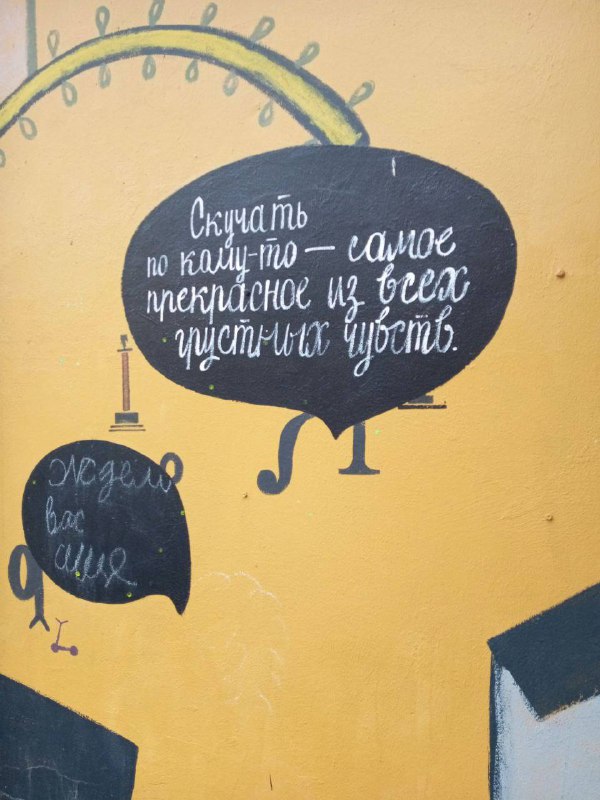 Скучать
по кому-то — самое
прекрасное из всех
грустных чувств.
вас